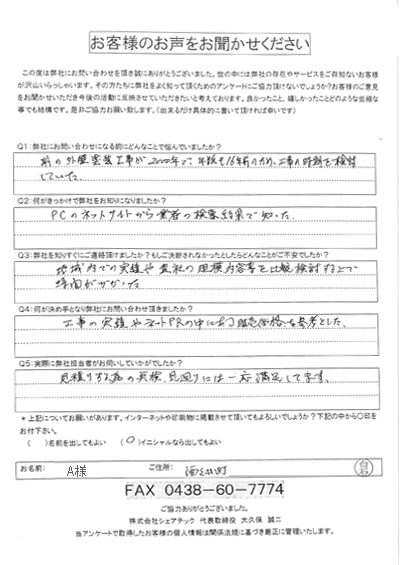 お客様のお声をお聞かせください
この度は弊社にお問い合わせを頂き誠にありがとうございました。世の中には弊社の存在やサービスをご存知ないお客様
が沢山いらっしゃいます。その方たちに弊社をよく知って頂くためのアンケートにご協力頂けないでしょうか?お客様のご意見
をお聞かせいただき今後の活動に反映させていただきたいと考えております。良かったこと、嬉しかったことどのような些細な
事でも結構です。是非ご協力お願い致します。(出来るだけ具体的に書いて頂ければ幸いです)
Q1:弊社にお問い合わせになる前にどんなことで悩んでいましたか?
前の外壁塗装工事が2000年で、年数も16年前のため、工事の時期を検討
していた。
Q2:何がきっかけで弊社をお知りになりましたか?
PCのネットサイトから業者の検索結果で知った。
Q3:弊社を知りすぐにご連絡頂けましたか?もしご決断されなかったとしたらどんなことがご不安でしたか?
地域内での実績や会社の規模内容等を比較検討する上で
時間がかかった。
Q4:何が決め手となり弊社にお問い合わせ頂きましたか?
工事の実績やネットPRの中にある販売価格を参考とした。
Q5:実際に弊社担当者がお伺いしていかがでしたか?
見積りする為の点検、見回りには一応満足してます。
*上記についてお願いがあります。インターネットや印刷物に掲載させて頂いてもよろしいでしょうか?下記の中から○印を
お付下さい。
( )名前を出してもよい (○)イニシャルなら出してもよい
お名前: A様 ご住所:
FAX 0438-60-7774
ご協力ありがとうございました。
株式会社シェアテック 代表取締役 大久保 誠二
当アンケートで取得したお客様の個人情報は関係法規に基づき厳正に管理いたします。